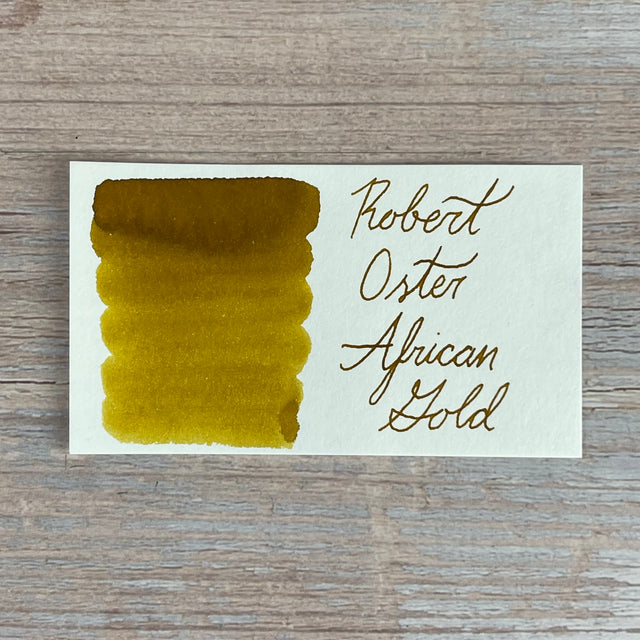 Robert
Oster
African
Gold